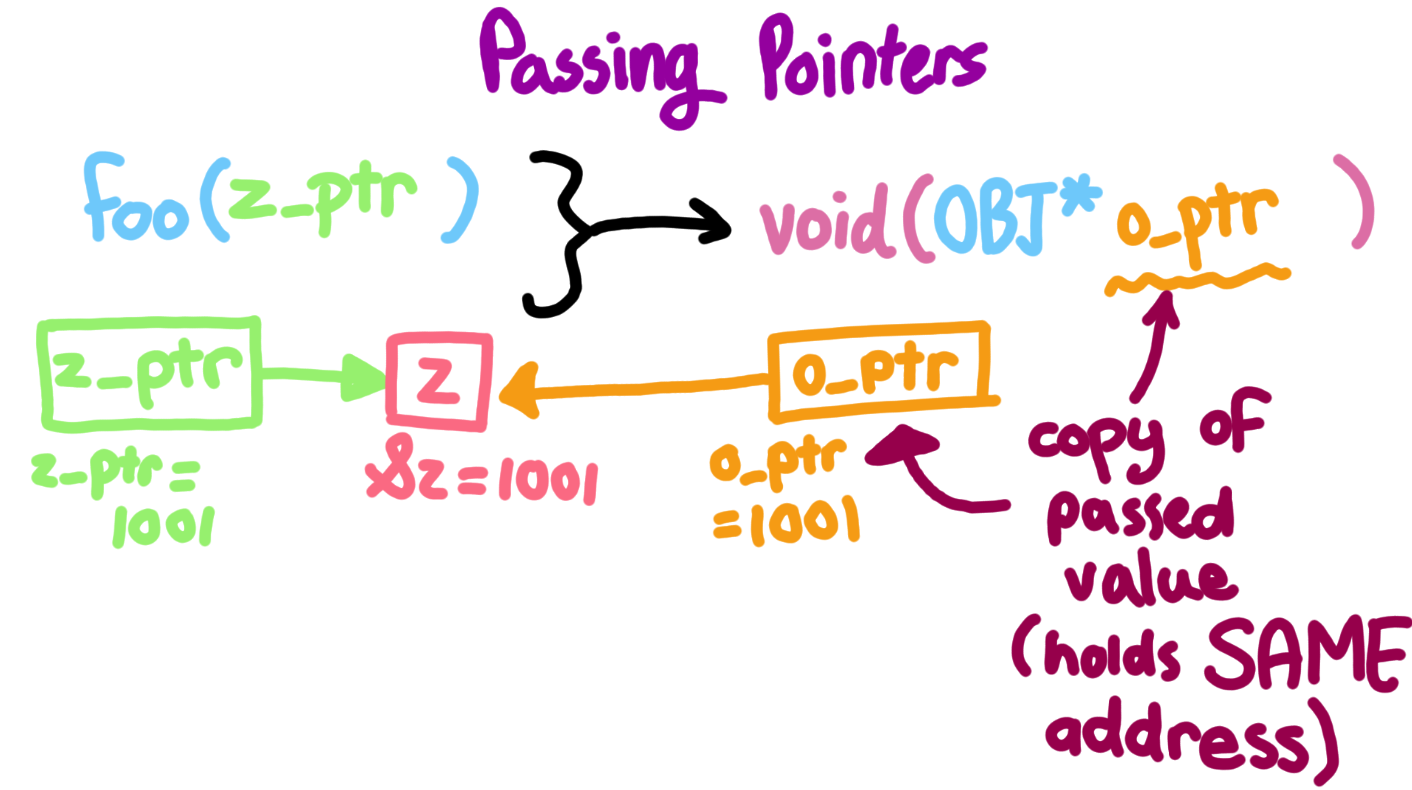 Passing Pointers
foo(z_ptr)
void(OBJ* o_ptr)
z_ptr
z
o_ptr
z_ptr =
1001
&z = 1001
o_ptr
= 1001
copy of
passed
value
(holds SAME
address)